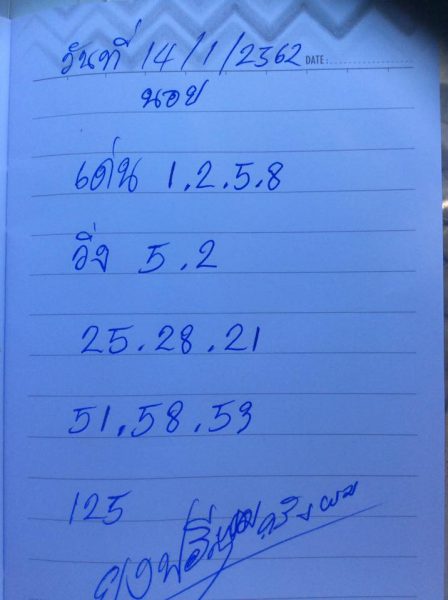 วันที่ 14/1/2562 DATE:
นอย
เด่น 1.2.5.8
วิ่ง 5.2
25.28.21
51.58.53
125